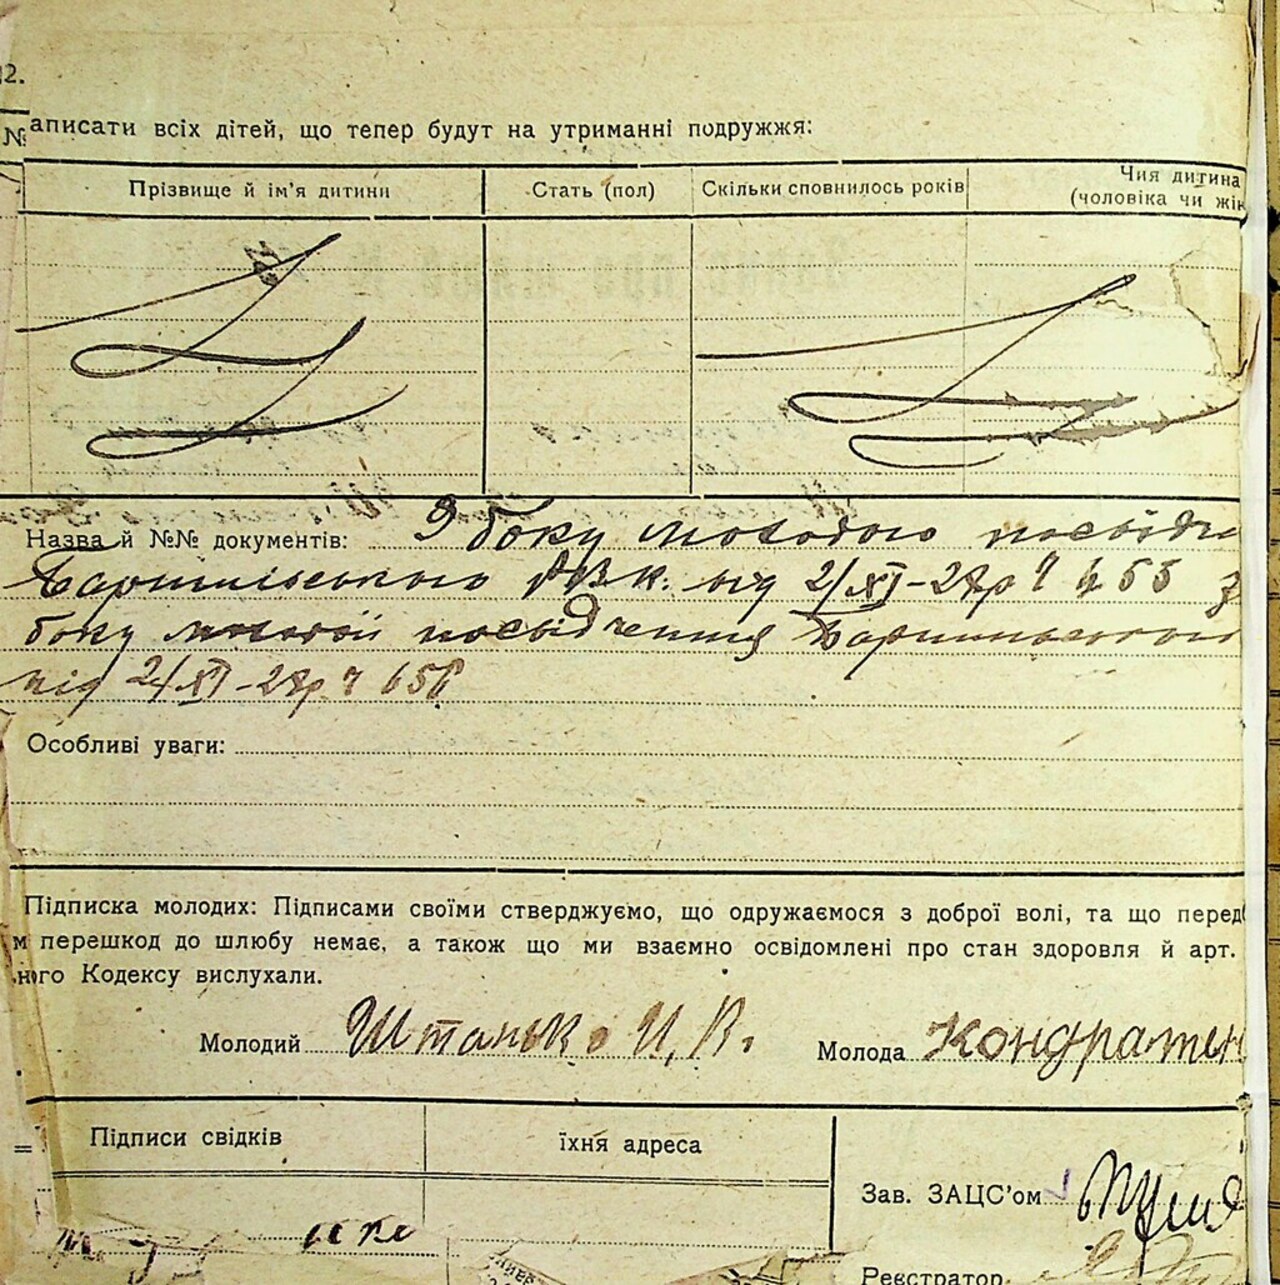 12.
№ аписати всіх дітей, що тепер будут на утриманні подружжя:
Прізвище й ім'я дитини Стать (пол) Скільки сповнилось років Чия дитина
(чоловіка чи жін
Назва й №№ документів: З боку молодого посвідч
РВК. від 2/XI-28р ч 655 з
боку молодой посвідчення
від 2/XI-28р ч 656
Особливі уваги:
Підписка молодих: Підписами своїми стверджуємо, що одружаємося з доброї волі, та що перед
м перешкод до шлюбу немає, а також що ми взаємно освідомлені про стан здоровля й арт.
ного Кодексу вислухали.
Молодий Штанько И, В. Молода Кондратен
Підписи свідків їхня адреса
Зав. ЗАЦС'ом
Реєстратор